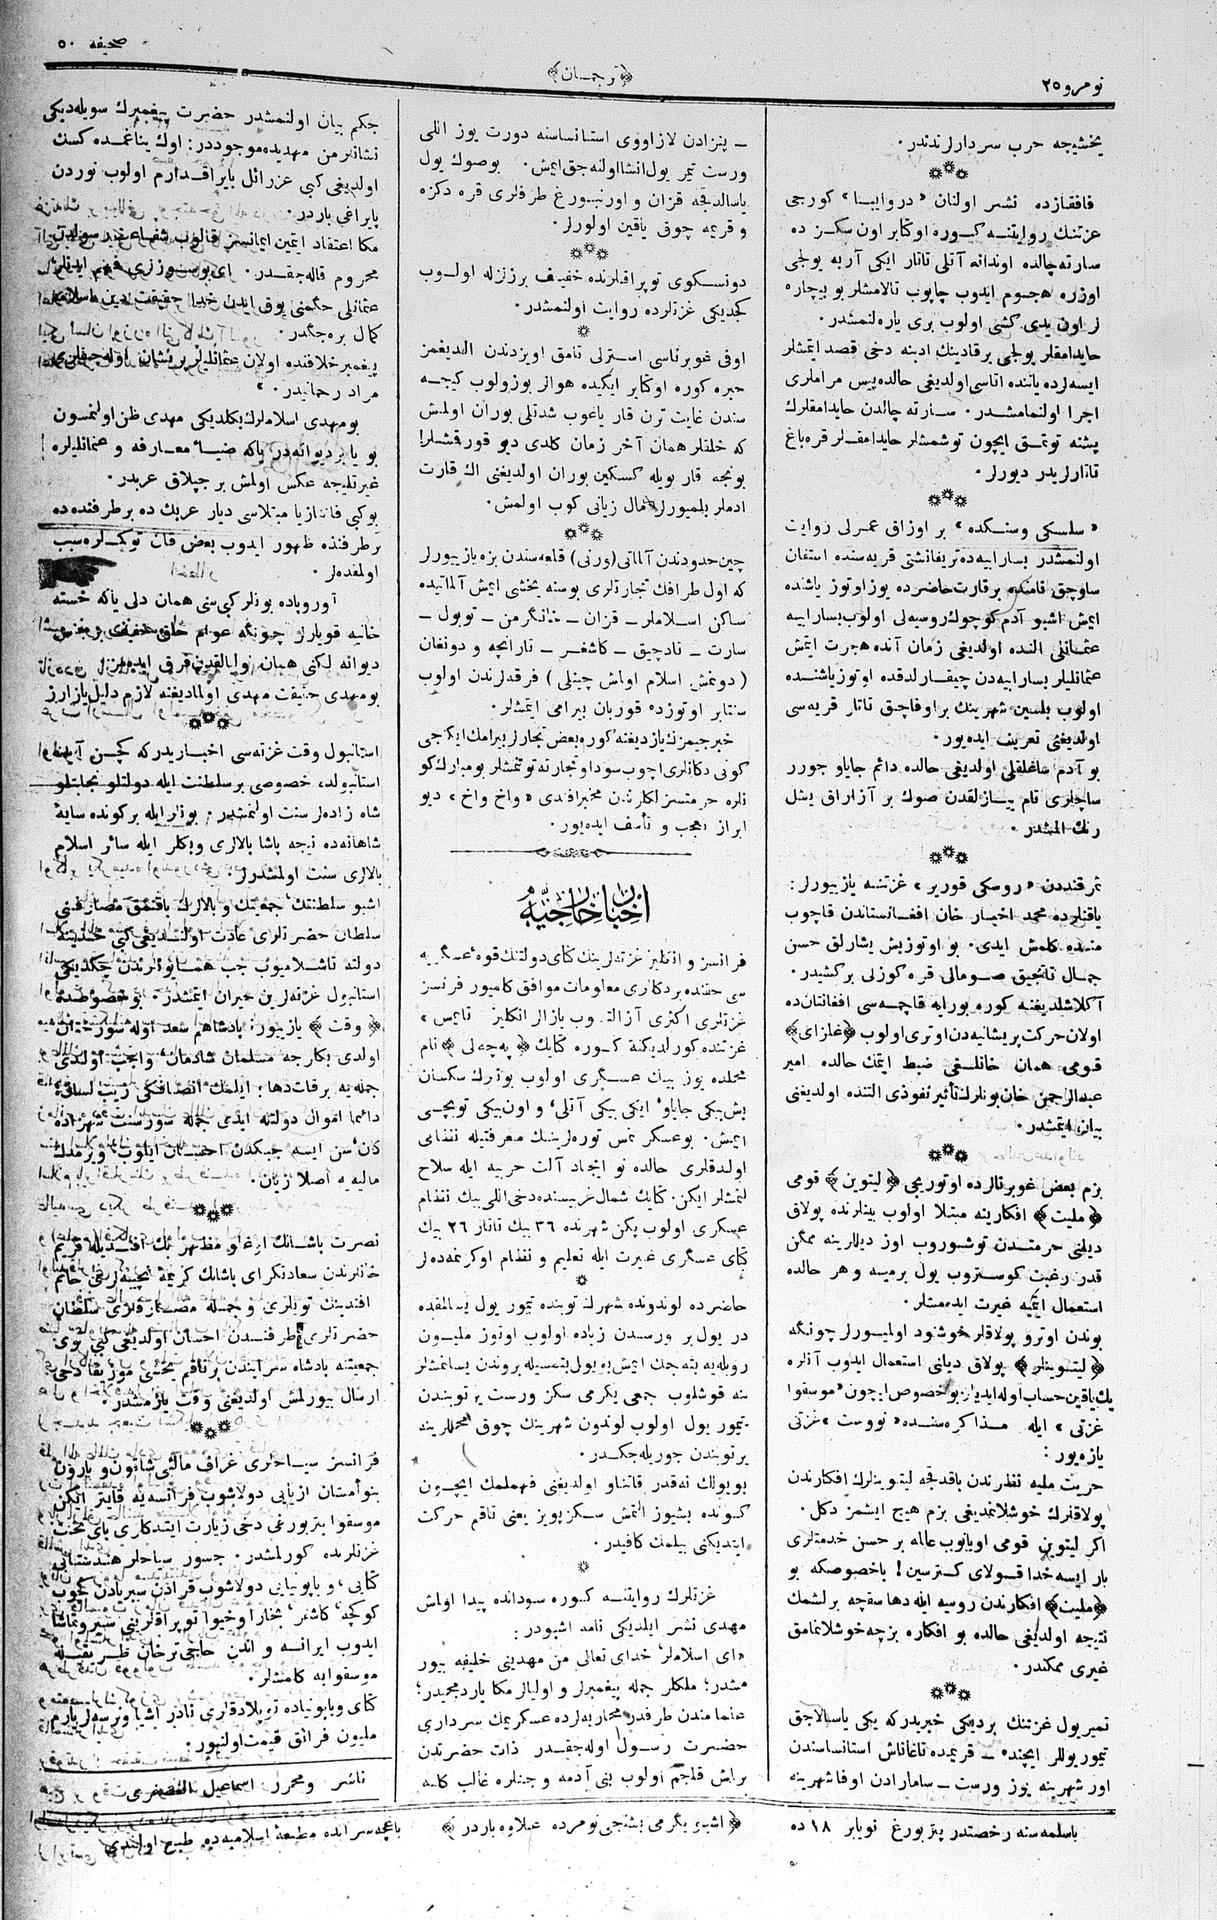 نومرو ٢٥
﴿ترجمان﴾
صحيفه ٥٠
يخشيجه حرب سردارلرندندر.
قافقازده نشر اولنان «دروايبا» كورجى
غزتنك روايتنه كوره اوكتابر اون سكز ده
سارته جالده اوندانه آتلى تاتار ايكى آربه يولجى
اوزره هجوم ايدوب چاپوب تالامشلر بو بيچاره
لر اون يدى كشى اولوب برى ياره لنمشدر.
حايدامقلر يولجى برقادينك ادبنه دخى قصد ايتمشلر
ايسه لرده ياننده اتاسى اولديغى حالده پيس مراملرى
اجرا اولنمامشدر. سارته چالدن حايدامقلرك
پشنه توتمق ايچون توشمشلر حايدامقلر قره باغ
تاتارلريدر ديورلر.
«سلسكى وستنكده» بر اوزاق عمرلى روايت
اولنمشدر بسارابيه ده تريفانشتى قريه سنده استفان
ساوچق قامنكه برقارت حاضرده يوز اوتوز ياشنده
ايمش اشبو آدم كوچوك روسيه لى اولوب بسارابيه
عثمانلى النده اولديغى زمان آنده هجرت ايتمش
عثمانليلر بسارابيه دن چيقارلدقده اوتوز ياشنده
اولوب بلسين شهرينك بر اوفاچق تاتار قريه سى
اولديغى تعريف ايده يور.
بو آدم ساغلقلى اولديغى حالده دائم جاياو جورر
ساچلرى تام بيازلقدن صوك بر آزاراق يشل
رنك المشدر.
ثمرقنددن «روسكى قورير» غزتنه يازيورلر:
ياقنلرده محمد اخيار خان افغانستاندن قاچوب
منده كلمش ايدى. بو اوتوزبش يشارلق حسن
جمال تانجيق صومالى قره كوزلى بركشيدر.
آكلاشلديغنه كوره بورايه قاچمه سى افغانتان ده
اولان حركت پريشانيه دن اوترى اولوب ﴿غلزاى﴾
قومى همان خانلغى ضبط ايتمك حالده امير
عبدالرحمن خان بونلرك تأثير نفوذى التنده اولديغى
بيان ايتمشدر.
بزم بعض غوبرنالرده اوتوريجى ﴿ليتوين﴾ قومى
﴿مليت﴾ افكارينه مبتلا اولوب بينلرنده پولاق
ديلنى حرمتدن توشوروب اوز ديللرينه ممكن
قدر رغبت كوستروب يول برميه و هر حالده
استعمال ايتميه غيرت ايده مشلر.
بوندن اوترو پولاقلر خوشنود اولميورلر چونكه
﴿ليتوينلر﴾ پولاق ديلنى استعمال ايدوب آنلره
پك ياقين حساب اوله ايديلر بو خصوص ايچون «موسقوا
غزتى» ايله مذاكره سنده «نووست» غزتى
يازه يور:
حريت مليه نظرندن باقدقجه ليتوينلرك افكارندن
پولاقلرك خوشلانمديغى بزم هيچ ايشمز دكل.
اكر ليتوين قومى اويانوب عالمه بر حسن خدمتلرى
بار ايسه خدا قولاى كترسين! باخصوصكه بو
﴿مليت﴾ افكارندن روسيه ايله دها سقجه برلشمك
نتيجه اولديغى حالده بو افكاره بزچه خوشلانمامق
غيرى ممكندر.
تمير يول غزتنك برديكى خبريدر كه يكى ياسالاجق
تيمور يوللر ايچنده ـ قريمده تاغاناش استانساسندن
اور شهرينه يوز ورست ـ سامارادن اوفا شهرينه
ـ پنزادن لازاووى استانساسنه دورت يوز اللى
ورست تيمر يول انشا اولنه جق ايمش. بو صوك يول
ياسالدقجه قزان و اورنبورغ طرفلرى قره دكزه
و قريمه چوق ياقين اولورلر.
دونسكوى توپراقلرنده خفيف برزلزله اولوب
كچديكى غزتلرده روايت اولنمشدر.
اوفى غوبرناسى استرلى تامق اويزدندن الديغمز
خبره كوره اوكتابر ايكيده هوالر بوزولوب كيچه
سندن غايت ترن قار ياغوب شدتلى بوران اولمش
كه خلقلر همان آخر زمان كلدى ديو قورقمشلر!
بونجه قار بويله كسكين بوران اولديغنى اك قارت
ادملر بلميورلر. مال زيانى كوب اولمش.
چين حدودندن آلماتى (ورنى) قلعه سندن بزه يازيورلر
كه اول طرافك تجارتلرى بوسنه يخشى ايمش آلماتيده
ساكن اسلاملر ـ قزان ـ خانكرمن ـ توبول ـ
سارت ـ تاجيق ـ كاشغر ـ تارانچه و دونغان
(دونمش اسلام اولمش چينلى) فرقه لرندن اولوب
سنتابر اوتوزده قوربان بيرامى ايتمشلر.
خبرجيمزك يازديغنه كوره بعض تجارلر بيرامك ايكنجى
كونى دكانلرى اچوب سودا و تجارته توتنمشلر بو مبارك كو
نلره حرمتسزلكلرندن مخبرافندى «واخ واخ» ديو
ابراز تعجب و تأسف ايده يور.
اخبار خارجيه
فرانسز و انكليز غزته لرينك كتاى دولتنك قوۀ عسكريه
سى حقنده بردكلرى معلومات موافق كلميور فرنسز
غزتلرى اكثرى آزالتوب يازالر انكليز «تايمس»
غزتنده كورلديكنه كوره كتايك ﴿په چه لى﴾ نام
محلده يوز بيك عسكرى اولوب بونلرك سكسان
بش بيكى جاياو، ايكى بيكى آتلى، و اون بيكى توپچى
ايمش. بو عسكر نمس توره لرينك معرفتيله نظامى
اولدقلرى حالده نو ايجاد آلت حربيه ايله سلاح
لنمشلر ايكن. كتايك شمال غربيسنده دخى اللى بيك نظام
عسكرى اولوب پكن شهرنده ٣٦ بيك تاتار ٢٦ بيك
كتاى عسكرى غيرت ايله تعليم و نظام اوكرنمه ده لر
حاضرده لوندونده شهرك توبنده تيمور يول يسالمقده
در يول بر ورسدن زياده اولوب اوتوز مليون
روبله يه بته جك ايمش بو يول بتمسيله بروندن يسانمشلر
ينه قوشلوب جمعى يكرمى سكز ورست ير توبندن
تيمور يول اولوب لوندون شهرينك چوق محللرينه
ير توبندن جوريله جكدر.
بو يوللك نه قدر قاتناو اولديغنى فهملمك ايچون
كونده بشيوز التمش سكز پويز يعنى تاقم حركت
ايتديكنى بيلمك كافيدر.
غزتلرك روايتنه كوره سودانده پيدا اولمش
مهدى نشر ايلديكى نامه اشبودر:
«اى اسلاملر! خداى تعالى من مهدينى خليفه بيور
مشدر؛ ملكلر جمله پيغمبرلر و اوليالر مكا ياردمجيدر؛
عثمانلدن طرفدر محاربه لرده عسكريمك سردارى
حضرت رسول اوله جقدر ذات حضرتدن
براش قلجم اولوب بنى آدمه و جنلره غالب كلمه
جكم بيان اولنمشدر حضرت پيغمبرك سويله ديكى
نشانلر من مهديده موجوددر: اوك يناغمده كست
اولديغى كبى عزرائل بايراقدارم اولوب نوردن
بايراغى باردر.
مكا اعتقاد ايتمين ايمانسز قالوب شفاعت رسولدن
محروم قاله جقدر. اى بو سوزلرى فهم ايدنلر؛
عثمانلى حكمنى يوق ايدن خدا حقيقت دين اسلامه
كمال بره جكدر.
پيغمبر خلافنده اولان عثمانليلر پريشان اوله جقلرى
مراد رحمانيدر.»
بو مهدى اسلاملرك بكلديكى مهدى ظن اولنمسون
بو يا بر ديوانه در ياكه ضياء معارفه و عثمانليلره
غيرتليجه عكس اولمش بر جپلاق عربدر.
بوكبى فانتازيا مبتلاسى ديار عربك ده برطرفنده ده
برطرفنده ظهور ايدوب بعض قان توكيلره سبب
اولمقده لر.
آوروپاده بونلر كبى سنى همان دلى ياكه خسته
خانيه قويارلر چونكه عوام خلق خفيف بر يخشى
ديوانه لكنى همان نوالقدن فرق ايده مز.
بو مهدى حقيقت مهدى اولماديغنه لازم دليل يازارز
استانبول وقت غزته سى اخباريدر كه كچن آيده
استانبولده خصوصى برسلطنت ايله دولتلو نجابتلو
شاه زاده لر سنت اولنمشدر. بونلر ايله بركونده سايۀ
شاهانه ده نيجه پاشا بالالرى و بكلر ايله سائر اسلام
بالالرى سنت اولمشدرلر.
اشبو سلطنتك جمعيتك و بالالرك باقتمق مصارفنى
سلطان حضرتلرى عادت اولنديغى كبى خزينۀ
دولته تاشلاميوب جب همايونلرندن چكديكى
استانبول غزته لرين حيران ايتمشدر. بو خصوصده
﴿وقت﴾ يازييور: پادشاهم سعد اوله سورستان
اولدى بكارجه مسلمان شادمان، واجب اولدى
جمله يه برقات دها؛ ايلمك انصافكى زيب لسان؛
دائما اقوال دولتله ايدى جمله سورسنت شهزاده
كان، سن ايسه جيبكدن احسان ايلوب ويرمدك
ماليه يه اصلا زيان.
نصرت پاشانك اوغلو مظهر بك افنديله قريم
خانلرندن سعادتكراى پاشانك كريمه نجيبه لرى خانم
افندينك تويلرى و جمله مصارفلرى سلطان
حضرتلرى طرفندن احسان اولديغى كبى توى
جمعيتنه پادشاه سرايندن برتاقم يخشى موزيقا دخى
ارسال بيورلمش اولديغى وقت يازمشدر.
فرانسز سياحلرى غراف مالئى شاتون و بارون
بنوامستان ازيايى دولاشوب فرانسه يه قايتر ايكن
موسقوا بتربورغى دخى زيارت ايتدكلرى پاى تخت
غزتلرنده كورلمشدر. جسور سياحلر هندستانى
كتايى، و ياپونيايى دولاشوب قرادن سيريادن كچوب
كوكچه، كاشغر، بخارا و خيوا توپراقلرينى سير و تماشا
ايدوب ايرانه و اندن حاجى ترخان طريقيله
موسقوايه كلمشلر.
كتاى و ياپونياده توپلادقلرى نادر اشيا و نرسه لر يارم
مليون فرانق قيمت اولنيور.
ناشر و محرر: اسماعيل الغصپرى
باسلمه سنه رخصتدر پتربورغ نويابر ١٨ ده
﴿اشبو يكرمى بشنجى نومرده علاوه باردر﴾
باغچه سرايده مطبعۀ اسلاميه ده طبع اولندى